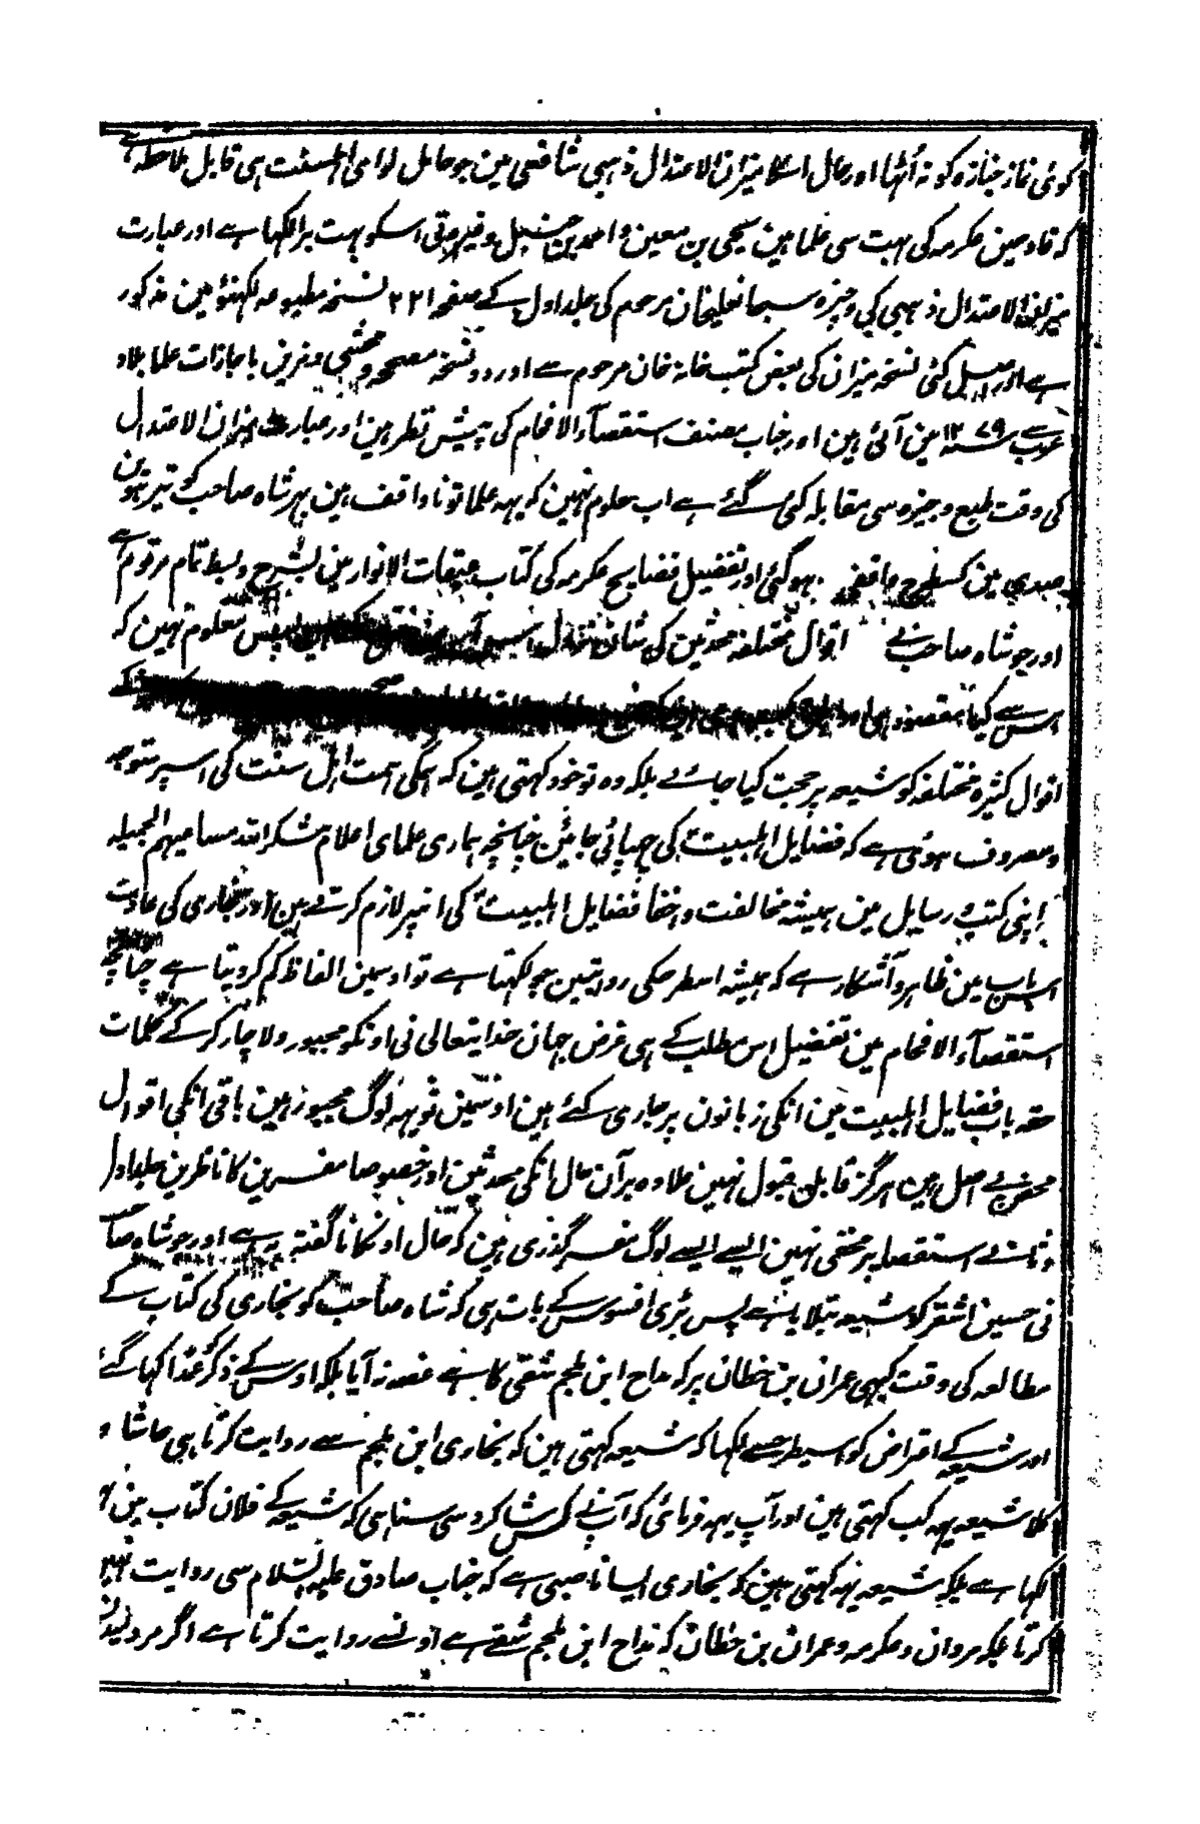 کوئی نماز جنازہ کو نہ اُٹھا اور حال اسکا میزان الاعتدال ذہبی شافعی مین جو حامل لوای اہلسنت ہی قابل ملاحظہ ہے
کہ قادحین عکرمہ کی بہت سی علما ہین یحیی بن معین و احمد بن حنبل وغیرہ نی اسکو بہت برا لکہا ہے اور عبارت
میزان الاعتدال ذہبی کی وجیزہ سبحانعلیخان مرحوم کی جلد اول کے صفحہ ۲۲۱ نسخہ مطبوعہ لکہنؤ مین مذکور
ہے اور کئی نسخہ میزان کی بعض کتب خانہ خان مرحوم سے اور دو نسخہ مصححہ و محشی و مزین با جازات علما بلاد
عرب سے سنہ ۱۲۷۹ مین آئی ہین اور جناب مصنف استقصآء الافحام کی پیش نظر ہین اور عبارت میزان الاعتدال
کی وقت طبع وجیزہ سی مقابلہ کی گئے ہے اب معلوم نہین کہ یہہ علما تو ناواقف ہین پہر شاہ صاحب کو تیرہوین
صدی مین کسطرح واقفی ہوگئی اور تفصیل فضایح عکرمہ کی کتاب عبقات الانوار مین بشرح و بسط تمام مرقوم ہے
اور جو شاہ صاحب نے اقوال مختلفہ محدثین کی شان نزول پس معلوم نہین کہ
اس سے کیا مقصود ہی کہ
اقوال کثیرہ مختلفہ کو شیعہ پر حجت کیا جائے بلکہ وہ تو خود کہتی ہین کہ ہمگی ہمت اہل سنت کی اسپر متوجہ
و مصروف ہوئی ہے کہ فضایل اہلبیت کی چہپائی جائین چنانچہ ہماری علمای اعلام شکر اللہ مساعیہم الجمیلہ
اپنی کتب و رسایل مین ہمیشہ مخالفت و اخفا فضایل اہلبیت کی انپر لازم کرتے ہین اور بخاری کی عادت
اس باب مین ظاہر و آشکار ہے کہ ہمیشہ اسطرحکی روایتین جو لکہتا ہے تو اوسمین الفاظ کم کر دیتا ہے چنانچہ
استقصآء الافحام مین تفصیل اس مطلب کے ہی غرض جہان خدایتعالی نی اونکو مجبور و لاچار کر کے کلمات
حقہ باب فضایل اہلبیت مین انکی زبانون پر جاری کئے ہین اوسمین تو یہہ لوگ مجبور ہین باقی انکی اقوال
محض بے اصل ہین ہرگز قابل قبول نہین علاوہ برآن حال انکی محدثین اور خصوصا مفسرین کا ناظرین جلد اول
و ثانی استقصا پر مخفی نہین ایسے ایسے لوگ مفسر گذری ہین کہ حال اونکا ناگفتہ بہ ہے اور جو شاہ صاحب
نی حسین اشقر کو شیعہ بتلایا ہے پس بڑی افسوس کے بات ہی کہ شاہ صاحب کو بخاری کی کتاب کے
مطالعہ کی وقت کبہی عمران بن حطان پر کہ مداح ابن ملجم شقی کا ہے غصہ نہ آیا بلکہ اوس کے ذکر کو عمدا کہا گئے
اور شیعہ کے اعتراض کو اسیطرحسے لکہا کہ شیعہ کہتی ہین کہ بخاری ابن ملجم سے روایت کرتا ہی حاشا و
کلا شیعہ یہہ کب کہتی ہین اور آپ یہہ فرمائی کہ آپ نے کس شاگرد سی سنا ہی کہ شیعہ کے فلان کتاب مین
لکہا ہے بلکہ شیعہ یہہ کہتی ہین کہ بخاری ایسا ناصبی ہے کہ جناب صادق علیہ السلام سی روایت نہین
کرتا بلکہ مروان و عکرمہ و عمران بن حطان کہ مداح ابن ملجم شقی ہے اونسے روایت کرتا ہے اگر مرد